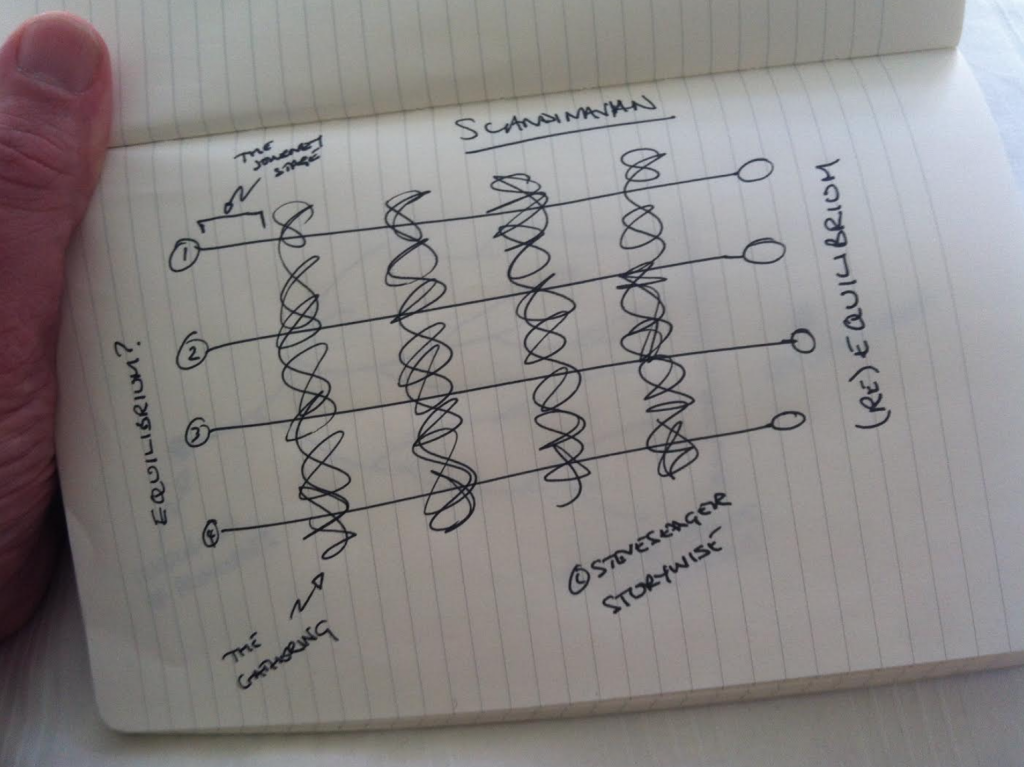 SCANDINAVIAN
THE
JOURNEY
STAGE
1
2
3
4
EQUILIBRIUM?
(RE) EQUILIBRIUM
THE
GATHERING
© STEVESEAGER
STORYWISE